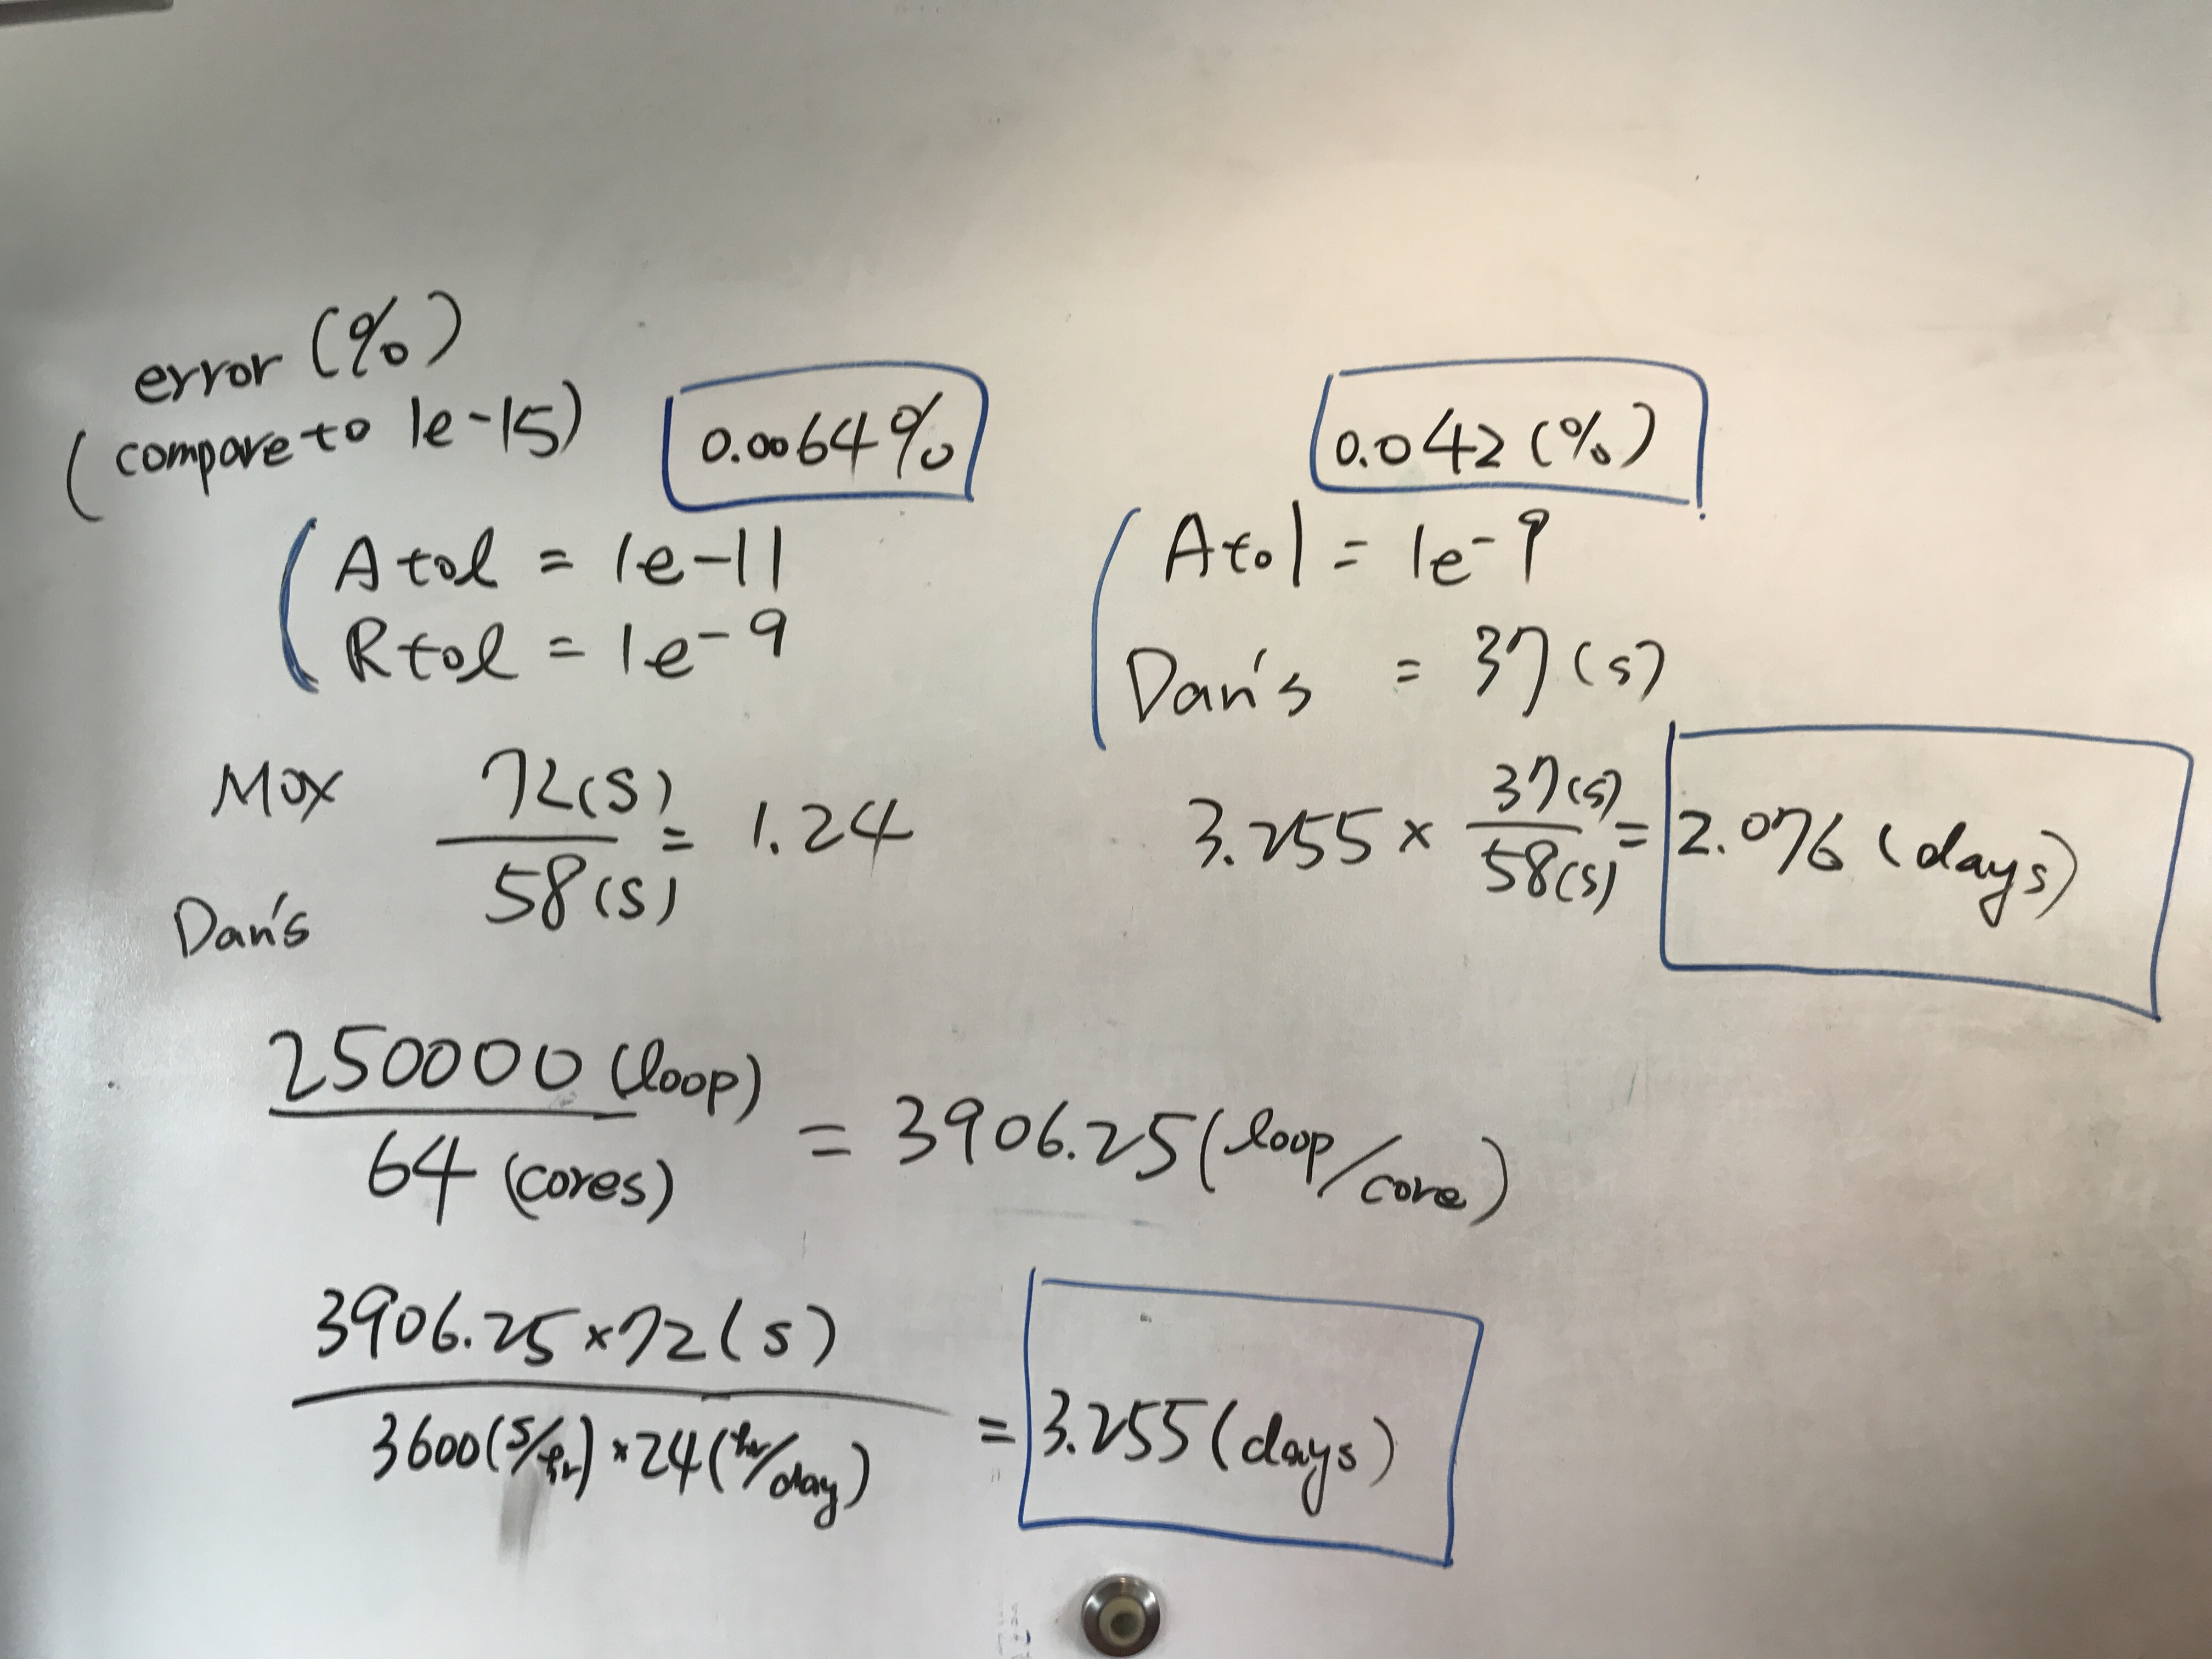 error (%)
(compare to 1e-15)
0.0064%
Atol = 1e-11
Rtol = 1e-9
Mox 72(s)
Dan's 58(s) = 1.24
0.042 (%)
Atol = 1e-9
Dan's = 37 (s)
3.255 × 37(s)/58(s) = 2.076 (days)
250000 (loop)
64 (cores)
= 3906.25 (loop/core)
3906.25 × 72 (s)
3600 (s/hr) × 24 (hr/day)
= 3.255 (days)